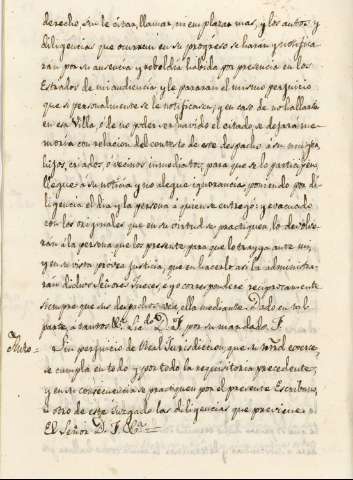 derecho, sin le citar, llamar, ni emplazar mas, y los autos y
diligencias que ocurran en su progreso se haran y notifica-
ran por su ausencia y rebeldia habida por presencia en los
Estrados de mi audiencia y le pararan el mismo perjuicio
que si personalmente se le notificasen; y en caso de no hallarse
en esa Villa, ó de no poder ser havido el citado se dejará me-
moria con relacion del contexto de este despacho á su muger,
hijos, criados, ó vecinos inmediatos; para que se lo participen,
llegue á su noticia y no alegue ignorancia poniendo por di-
ligencia el dia y la persona á quien se entregó: y evacuado
con los originales que en su virtud se practiquen lo devolve-
rán á la persona que los presente para que lo trayga ante mi,
y en su vista provea justicia, que en hacerlo asi la administra-
ran dichos Señores Jueces, e yo corresponderé reciprocamente
siempre que sus despachos vea, ella mediante. Dado en tal
parte, a tantos &c. Licdo. D. F. por su mandado F.
Auto = Sin perjuicio de Real Jurisdiccion que su mrd exerce,
se cumpla en todo y por todo la requisitoria precedente;
y en su consecuencia se practiquen por el presente Escribano,
u otro de este Juzgado las diligencias que previene.
El Señor D. F. &c. =